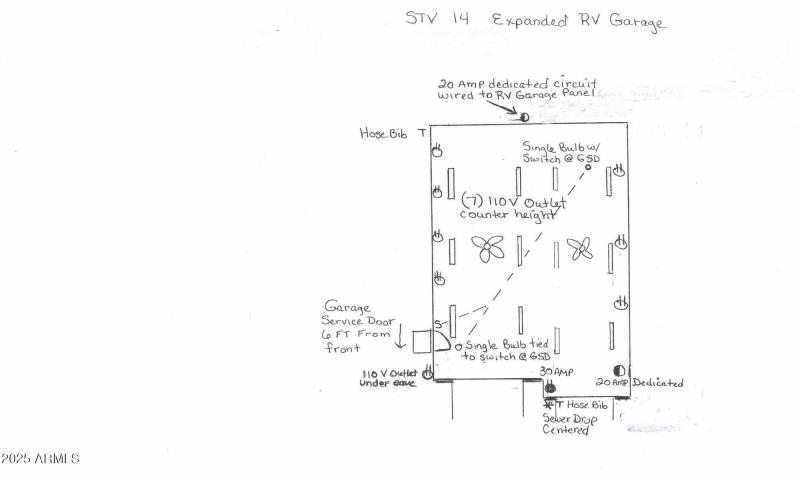 STV 14 Expanded RV Garage
20 Amp dedicated circuit
wired to RV Garage Panel
Hose Bib T
Single Bulb w/
Switch @ GSD
(7) 110 V Outlet
counter height
Garage
Service Door
6 FT From
front
S
Single Bulb tied
to switch @ GSD
110 V Outlet
under eave
30 AMP
20 AMP Dedicated
T Hose Bib
Sewer Drop
Centered
2025 ARMLS